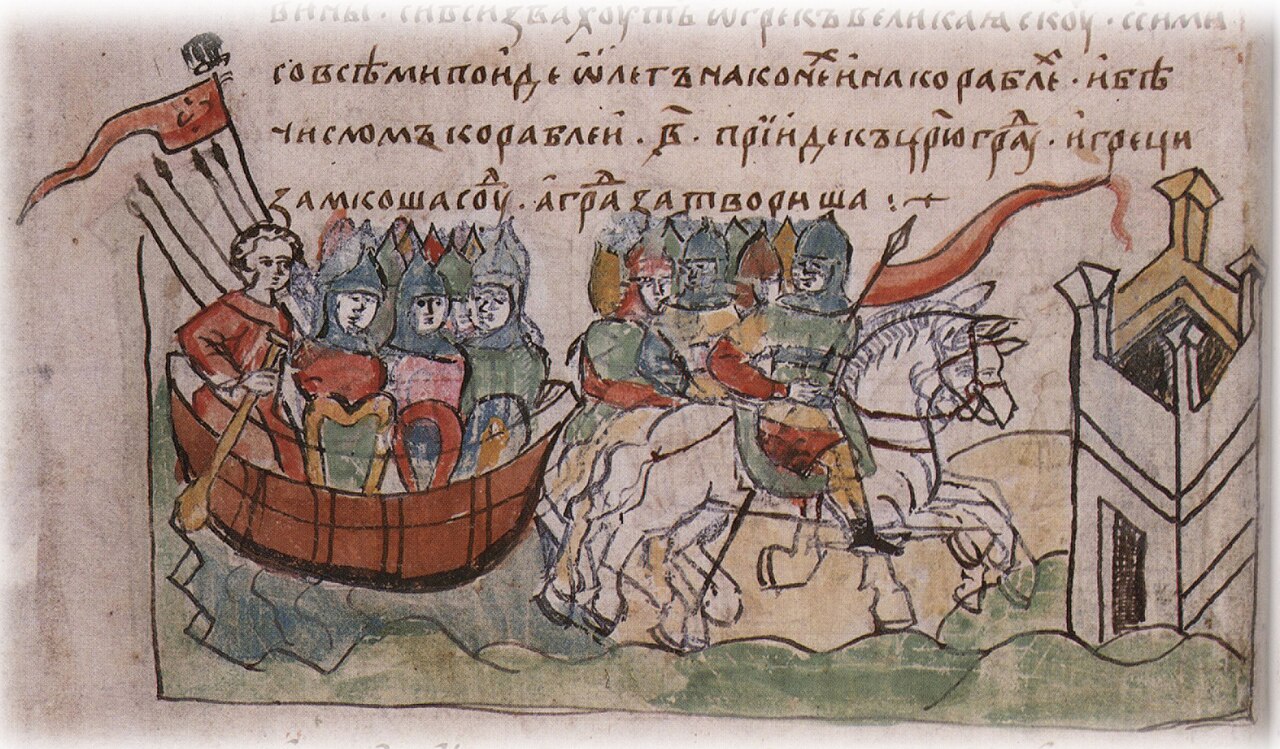 вины · си вси звахоуть ѿ грекъ великаꙗ скоу · с сими
со всѣми поиде ѡлегъ на конеⷯ и на кораблеⷯ · и бѣ
числомъ кораблеи · в҃ · прїиде къ цр҃ю граⷣу · и греци
замкоша соуⷣ · а граⷣ затвориша :~